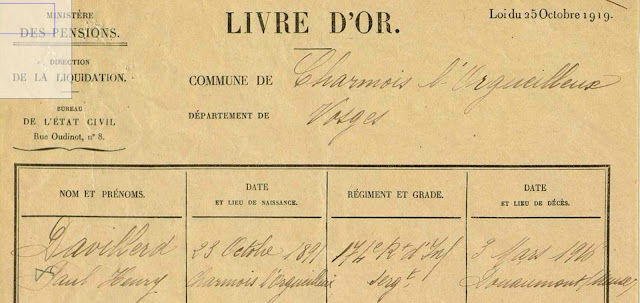 MINISTÈRE
DES PENSIONS.
DIRECTION
DE LA LIQUIDATION.
BUREAU
DE L'ÉTAT CIVIL
Rue Oudinot, n° 8.
LIVRE D'OR.
Loi du 25 Octobre 1919.
COMMUNE DE Charmois l'Orgueilleux
DÉPARTEMENT DE Vosges
NOM ET PRÉNOMS.
DATE
ET LIEU DE NAISSANCE.
RÉGIMENT ET GRADE.
DATE
ET LIEU DE DÉCÈS.
Davillerd 23 Octobre 1891 174e Rt d'Inf 3 Mars 1916
Paul Henry Charmois l'Orgueilleux Sergt Douaumont (Meuse